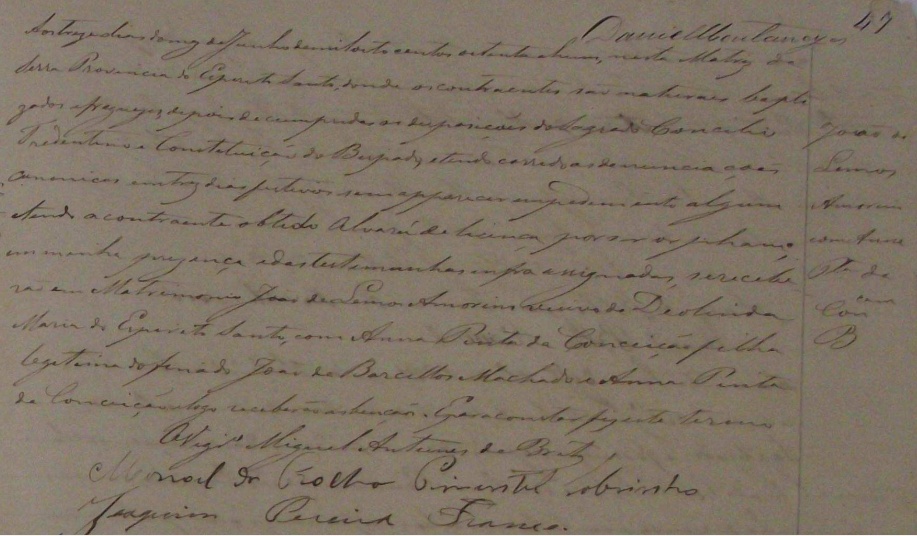 Daniel Montanez es
47
Aos treze dias do mez de Junho de mil oito centos oitenta e hum, nesta Matriz da
Serra Provincia do Espirito Santo, donde os contraentes são naturaes bapti
zados e freguezes, depois de cumpridas as desposicões do Sagrado Concilio
Tredentino e Constituição do Bispado, e tendo corrido as denunciacões
canonicas em trez dias festivos sem apparecer empedimento algum
e tendo a contraente obtido Alvará de licença por ser orpham,
em minha presença, e das testimunhas infra assignadas, se recebe
rão em Matremonio João de Lemos Amorim viuvo de Deolinda
Maria do Espirito Santo, com Anna Pinta da Conceição filha
legitima do finado João de Barcellos Machado e Anna Pinta
da Conceição e logo receberão as bençãos. E para constar fiz este termo
O Vigr.º Miguel Antunes de Brito,
Manoel da Rocha Pimentel Sobrinho
Joaquim Pereira Franco.
João de
Lemos
Amorim
com Anna
Pta da
Con cam
B